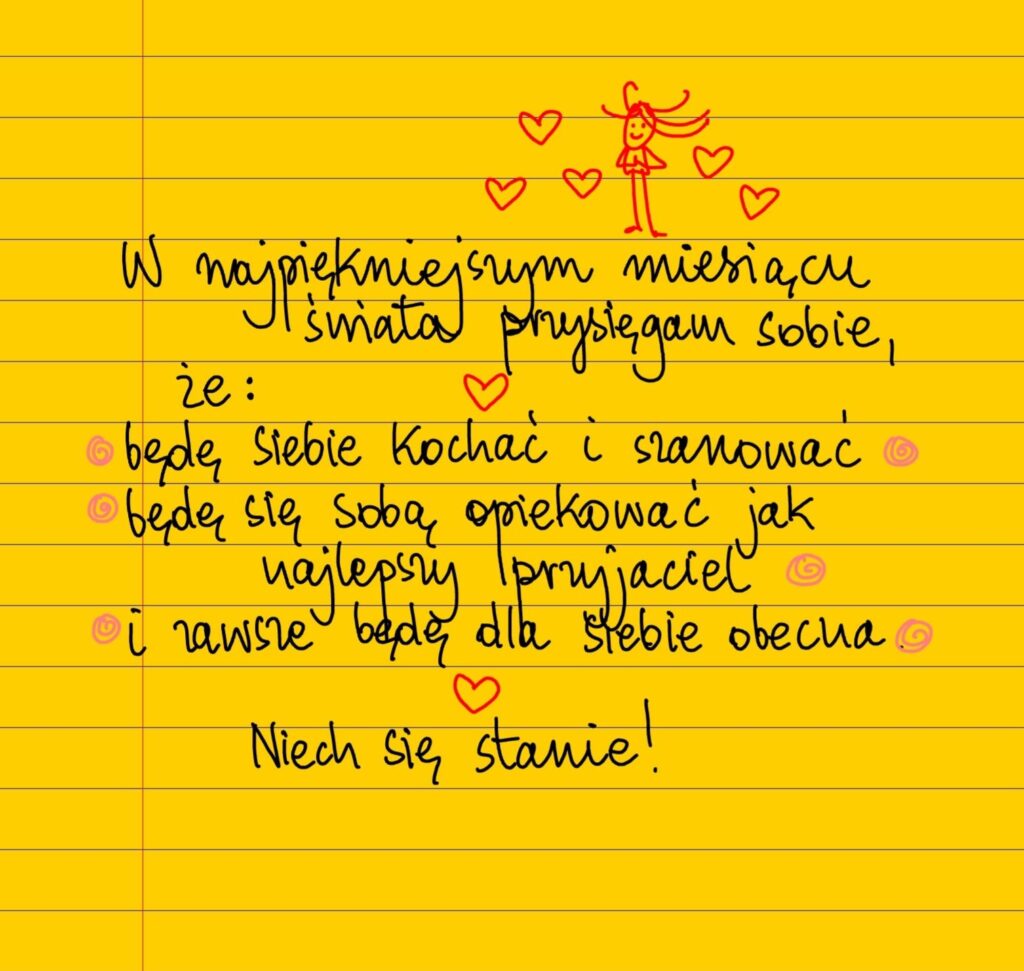 W najpiękniejszym miesiącu
świata przysięgam sobie,
że:
będę siebie kochać i szanować
będę się sobą opiekować jak
najlepszy przyjaciel
i zawsze będę dla siebie obecna.
Niech się stanie!